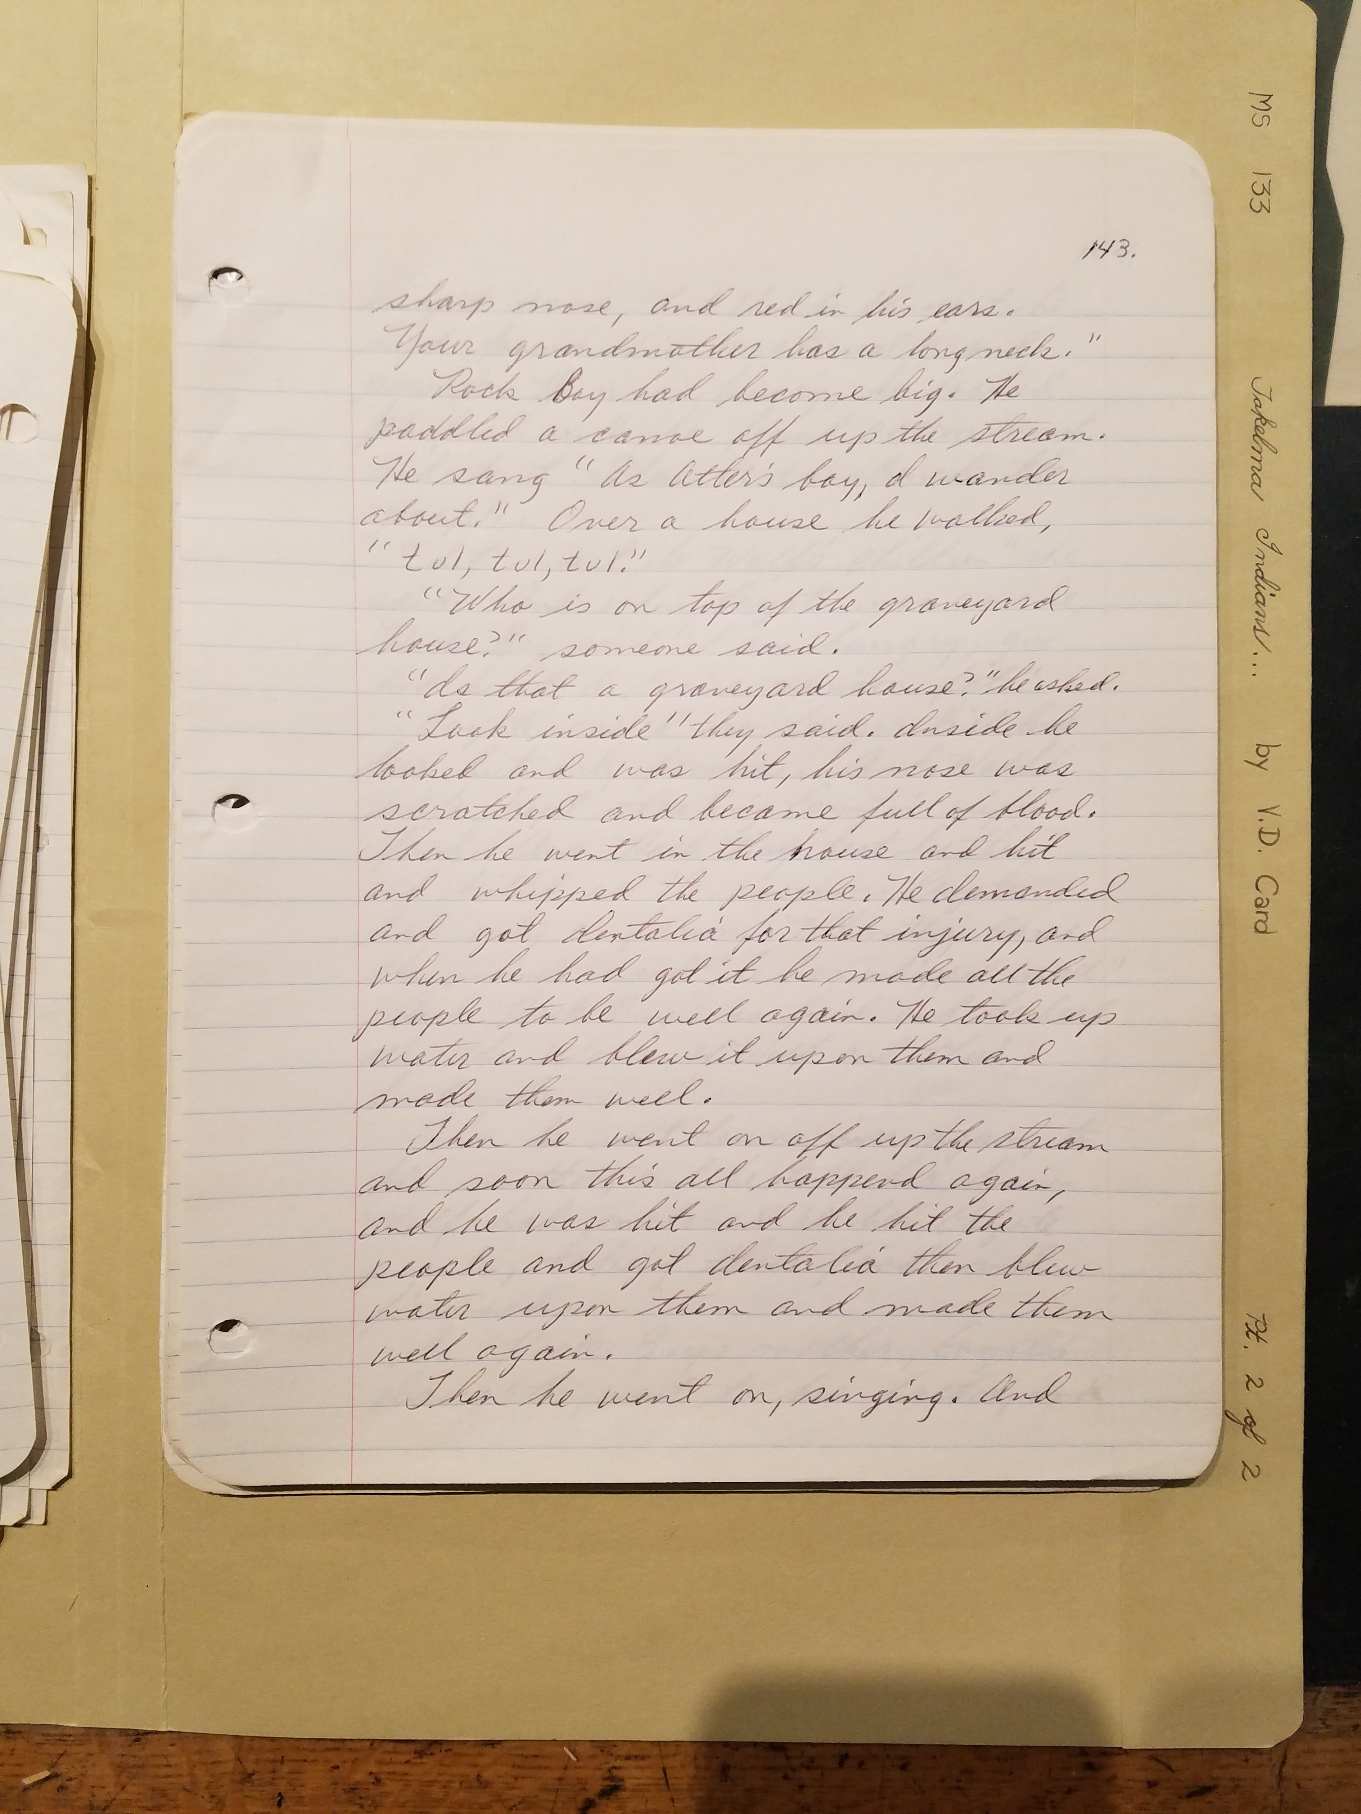 143.
sharp nose, and red in his ears.
Your grandmother has a long neck."
Rock Boy had become big. He
paddled a canoe off up the stream.
He sang "As Otter's boy, I wander
about." Over a house he walked,
"tul, tul, tul."
"Who is on top of the graveyard
house?" someone said.
"Is that a graveyard house?" he asked.
"Look inside" they said. Inside he
looked and was hit, his nose was
scratched and became full of blood.
Then he went in the house and hit
and whipped the people. He demanded
and got dentalia for that injury, and
when he had got it he made all the
people to be well again. He took up
water and blew it upon them and
made them well.
Then he went on off up the stream
and soon this all happend again,
and he was hit and he hit the
people and got dentalia then blew
water upon them and made them
well again.
Then he went on, singing. And
MS 133 Takelma Indians... by V.D. Card Pt. 2 of 2